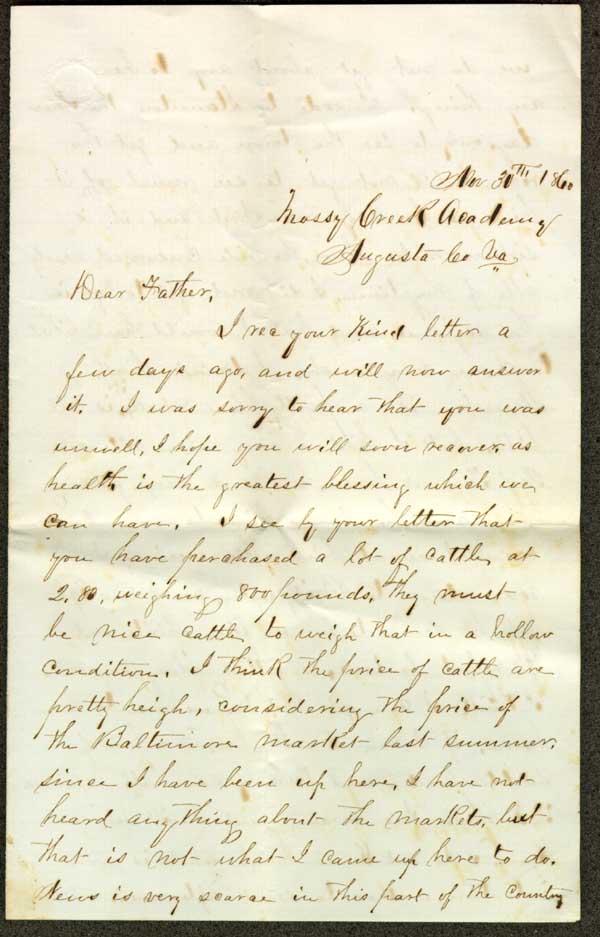 Nov 30TH 1860
Mossy Creek Academy
Augusta Co Va
Dear Father,
I rec your kind letter a
few days ago, and will now answer
it. I was sorry to hear that you was
unwell, I hope you will soon recover, as
health is the greatest blessing which we
can have. I see by your letter that
you have perchased a lot of cattle at
2,80, weighing 800 pounds, they must
be nice cattle to weigh that in a hollow
condition. I think the price of cattle are
pretty heigh, considering the price of
the Baltimore market last summer,
since I have been up here, I have not
heard anything about the markets, but
that is not what I came up here to do.
News is very scarce in this part of the country